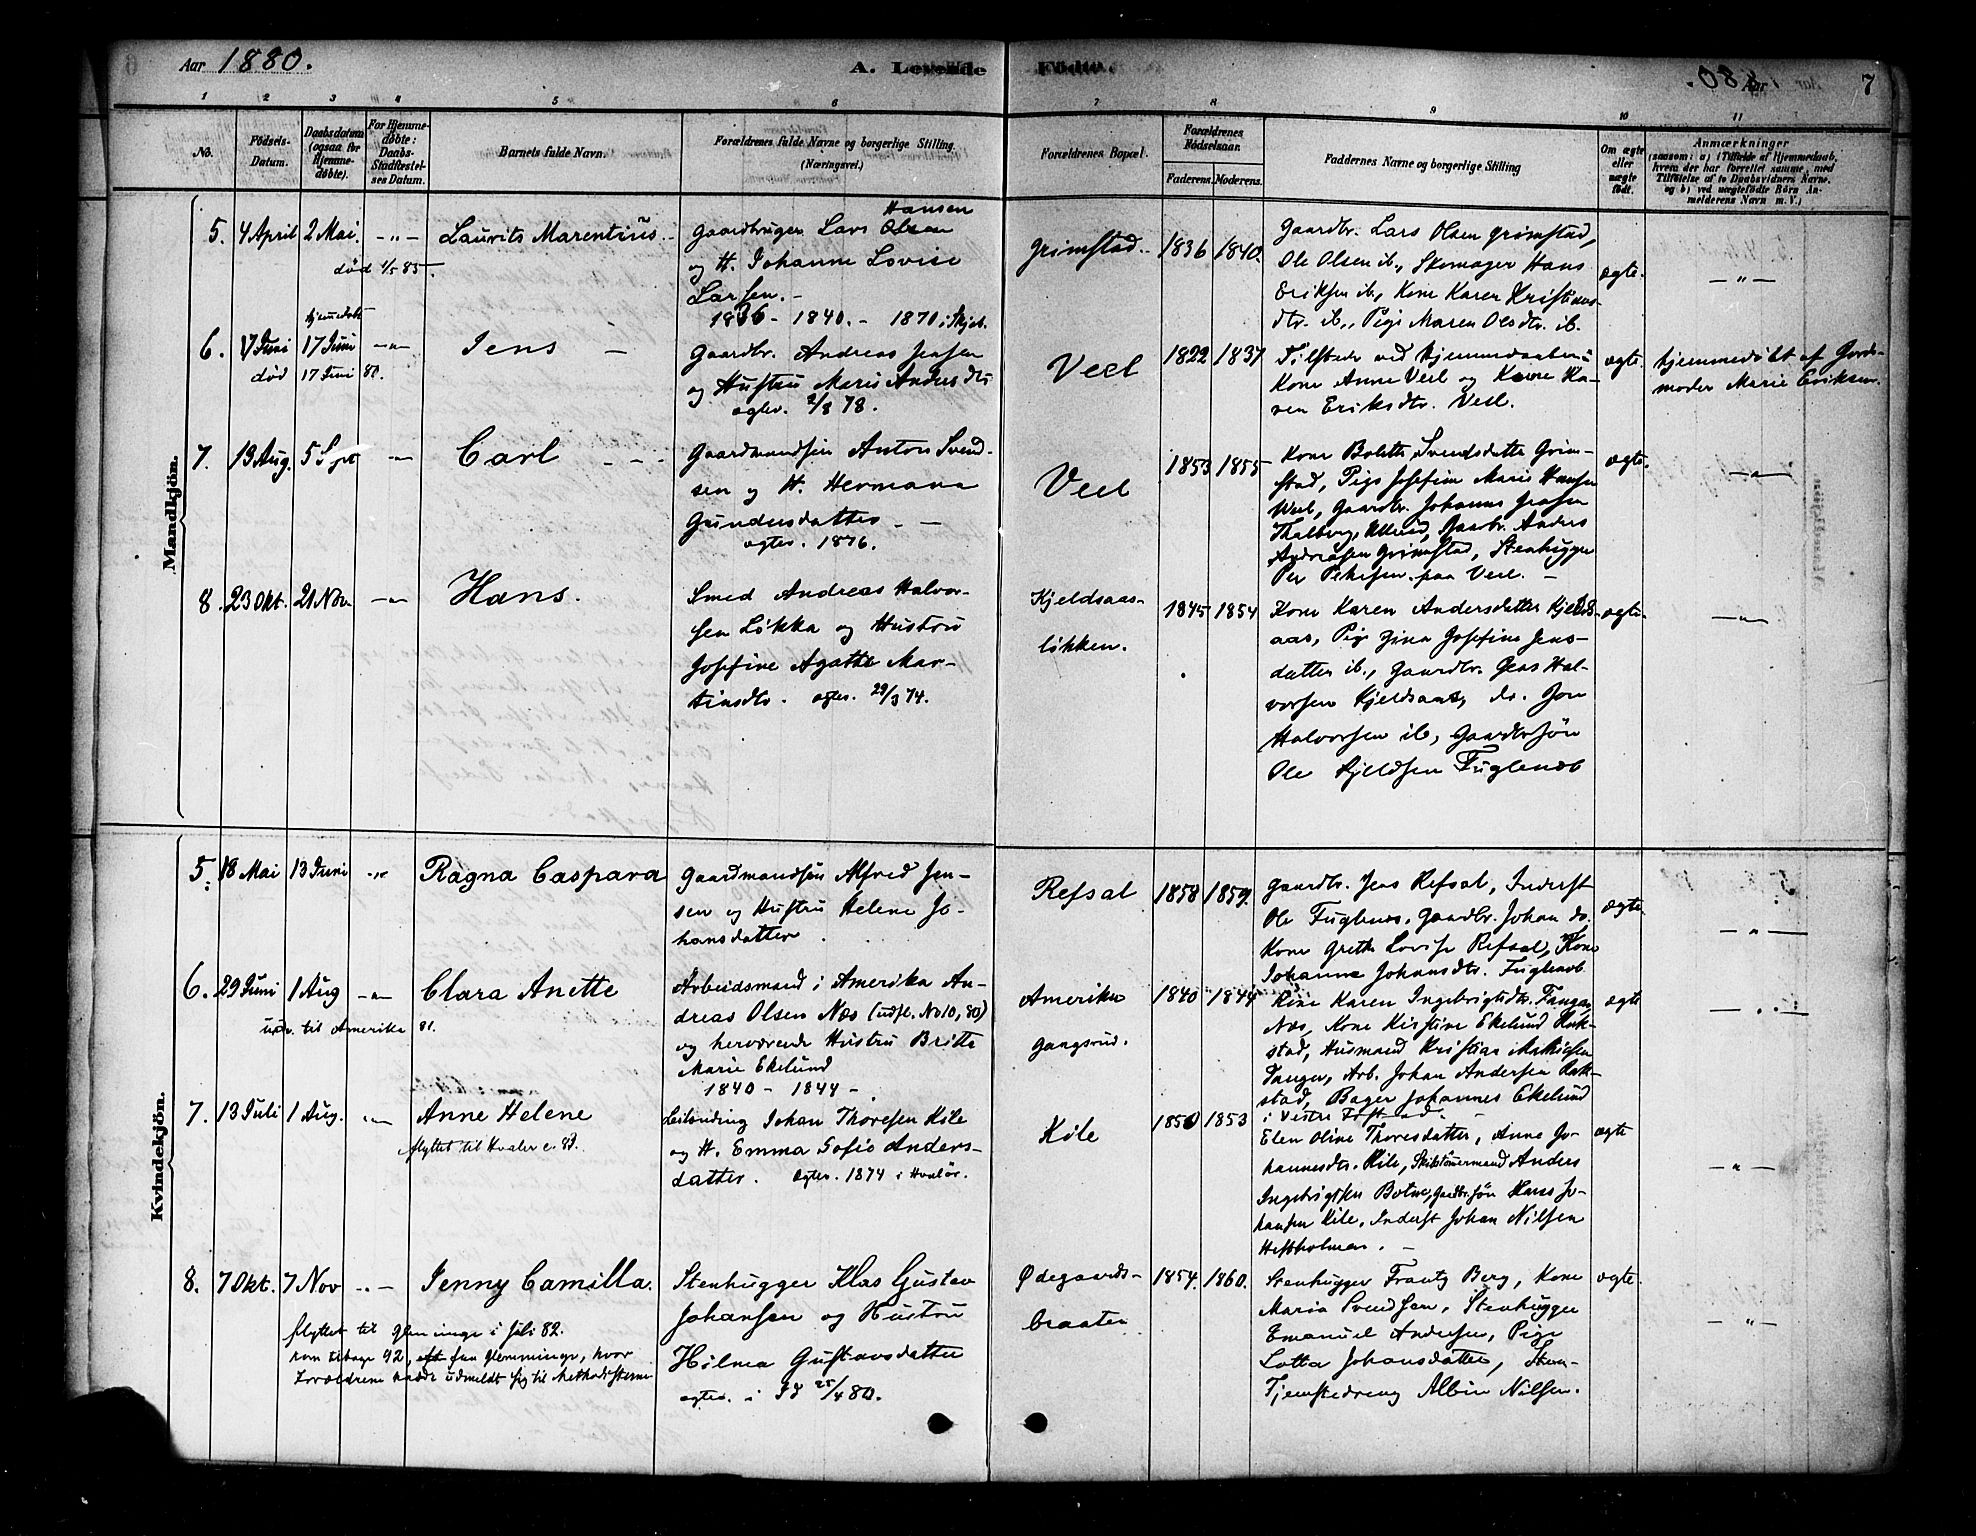 Aar 1880.
A. Levende Födte.
7
1 2 3 4 5 6 7 8 9 10 11
No.
Födsels-Datum.
Daabsdatum (ogsaa for Hjemmedöbte).
For Hjemmedöbte: Daabs-Stadfæstelses Datum.
Barnets fulde Navn.
Forældrenes fulde Navne og borgerlige Stilling. (Næringsvei.)
Forældrenes Bopæl.
Forældrenes Födselsaar.
Faderens. Moderens.
Faddernes Navne og borgerlige Stilling
Om ægte eller uægte födt.
Anmærkninger
(saasom: a) i Tilfælde af Hjemmedaab, hvem der har forrettet samme, med Tilföielse af to Daabsvidners Navne, og b) ved uægtefödte Börn Anmelderens Navn m. V.)
Mandkjön.
5. 4 April 2 Mai. -"- Laurits Marentius.
død 1/5 85.
Gaardbruger Lars Hansen
og H. Johanne Lovise
Larsen. -
1836 - 1840. - 1870 i Skjeb.
Grimstad. 1836 1840.
Gaardbr. Lars Olsen Grimstad,
Ole Olsen ib., Skomager Hans
Eriksen ib., Kone Karen Kristians-
dtr. ib., Pige Maren Olsdtr. ib.
ægte. -"-
6. 17 Juni 17 Juni -"- Jens -
hjemmedøbt
død 17 Juni 80.
Gaardbr. Andreas Jensen
og Hustru Marie Andersdtr
ægtev. 2/8 78.
Veel 1822 1837
Tilstede ved Hjemmedaaben:
Kone Anne Veel og Kone Ka-
ren Eriksdtr. Veel.
ægte.
hjemmedöbt af Jorde-
moder Marie Eriksen.
7. 13 Aug. 5 Sept -"- Carl - -
Gaardmandssön Anton Svend-
sen og H. Hermana
Gundersdatter - -
ægtev. 1876.
Veel 1853 1855
Kone Bolette Svendsdatter Grim-
stad, Pige Josefine Marie Hansen
Veel, Gaardbr. Johannes Jensen
Thalberg, Ullerud, Gaardbr. Anders
Andreasen Grimstad, Stenhugger
Per Petersen paa Veel. -
ægte. -"-
8. 23 Okt. 21 Nov. -"- Hans.
Smed Andreas Halvor-
sen Løkka og Hustru
Josefine Agathe Mar-
tinsdtr. ægtev. 29/3 74.
Kjeldsaas-
løkken.
1845 1854
Kone Karen Andersdatter Kjelds-
aas, Pige Gina Josefine Jens-
datter ib., Gaardbr. Jens Hal-
vorsen Kjeldsaas, do. Jon
Halvorsen ib., Gaardbrsön
Ole Kjeldsen Fuglenæb
ægte. -"-
Kvindekjön.
5. 18 Mai 13 Juni -"- Ragna Caspara
Gaardmandssön Alfred Jen-
sen og Hustru Helene Jo-
hansdatter.
Refsal 1858 1859.
Gaardbr. Jens Refsal, Inderst
Ole Fuglenæb, Gaardbr. Johan do.
Kone Grethe Lovise Refsal, Kone
Johanne Johansdtr. Fuglenæb
ægte. -"-
6. 29 Juni 1 Aug -"- Clara Anette
udv. til Amerika 81.
Arbeidsmand i Amerika An-
dreas Olsen Næs (udfl. No 10, 80)
og herværende Hustru Britte
Marie Ekelund
1840 - 1844 -
Amerika
Gangsrud.
1840 1844
Kone Karen Ingebrigtsdtr. Tangen,
Næs, Kone Kristine Ekelund Rak-
stad, Husmand Kristian Mathisen
Tangen, Arb. Johan Andersen Rak-
stad, Bager Johannes Ekelund
i Vestre
ægte -"-
7. 13 Juli 1 Aug. -"- Anne Helene
flyttet til Hvaler c. 83.
Leilænding Johan Thoresen Kile
og H. Emma Sofie Anders-
datter. ægtev. 1874 i Hvalør.
Kile 1850 1853
Elen Oline Thoresdatter, Anne Jo-
hannesdtr. Kile, Skibstömermand Anders
Ingebrigtsen Botne, Gaardbr.sön Hans Jo-
hansen Kile, Inderst Johan Nilsen
Heftholmen. -
ægte -"-
8. 7 Okt. 7 Nov -"- Jenny Camilla.
flyttet til Glemminge i Juli 82.
kom tilbage 92, fra Glemminge, hvor
Forældrene havde udmeldt sig til Methodisterne
Stenhugger Klas Gustav
Johansen og Hustru
Hilma Gustavsdatter
ægtev. i Id 25/4 80.
Ødegaards-
braaten
1854. 1860.
Stenhugger Frantz Berg, Kone
Maria Svendsen, Stenhugger
Emanuel Andersen, Pige
Lotta Johansdatter,
Tjenestedreng Albin Nilsen.
ægte. -"-